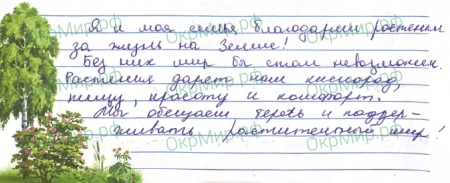 Я и моя семья благодарим растениям
за жизнь на Земле!
Без них мир бы стал невозможен.
Растения дарят нам кислород,
пищу, красоту и комфорт.
Мы обещаем беречь и поддер-
живать растительный мир!